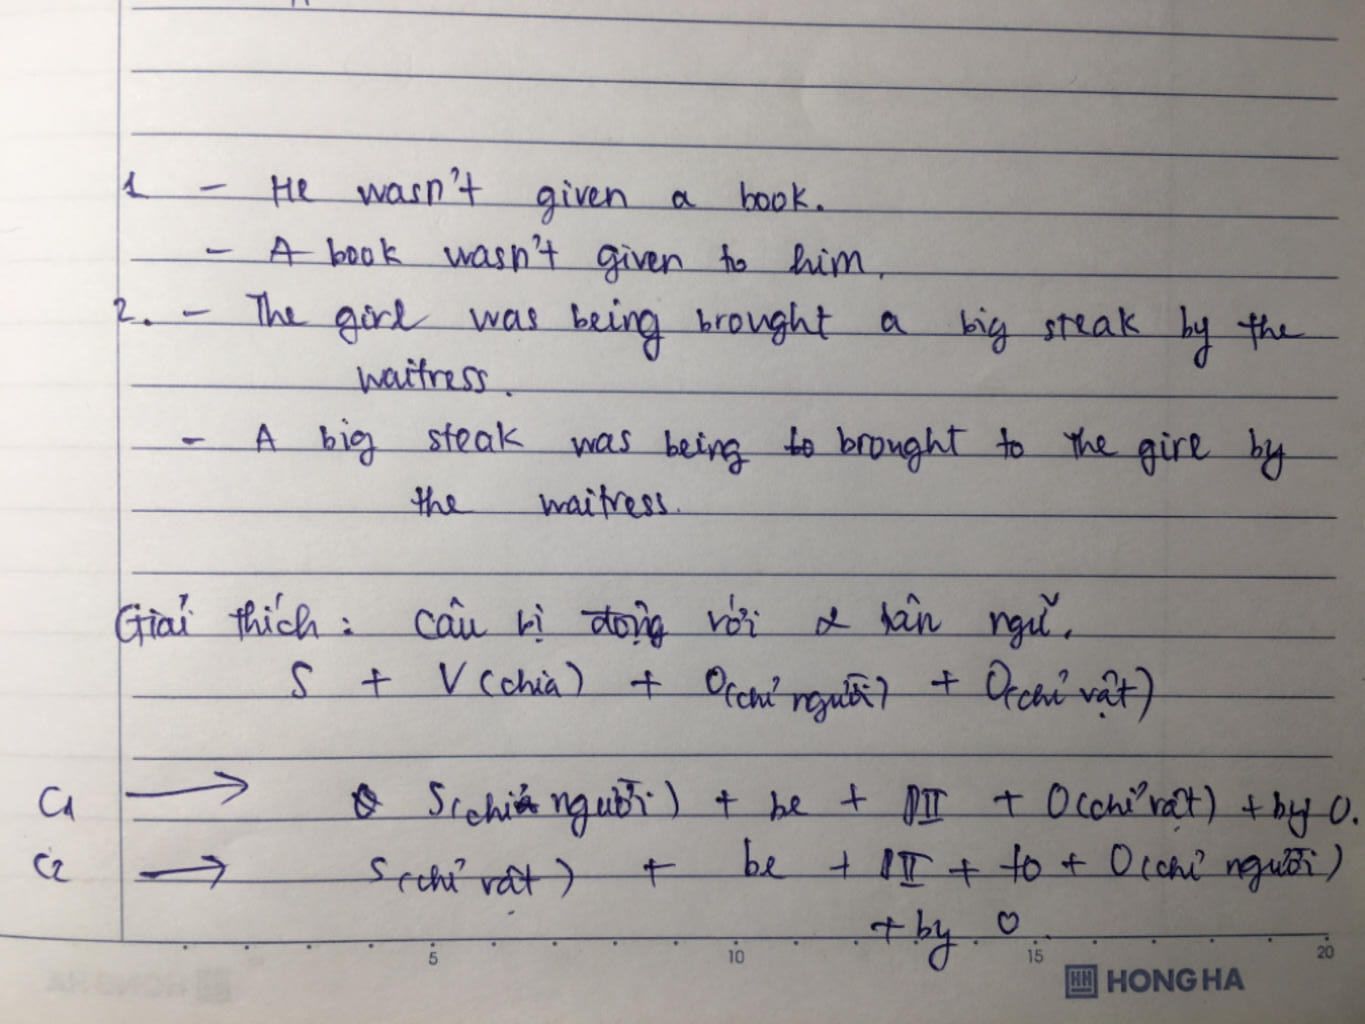 1 - He wasn't given a book.
- A book wasn't given to him.
2. - The girl was being brought a big steak by the
waitress.
- A big steak was being brought to the girl by
the waitress.
Giải thích: câu bị động với 2 tân ngữ.
S + V (chia) + O (chỉ người) + O (chỉ vật)
C1 → S (chỉ người) + be + PII + O (chỉ vật) + by O.
C2 → S (chỉ vật) + be + PII + to + O (chỉ người)
+ by O
5 10 15 20
HH HONG HA